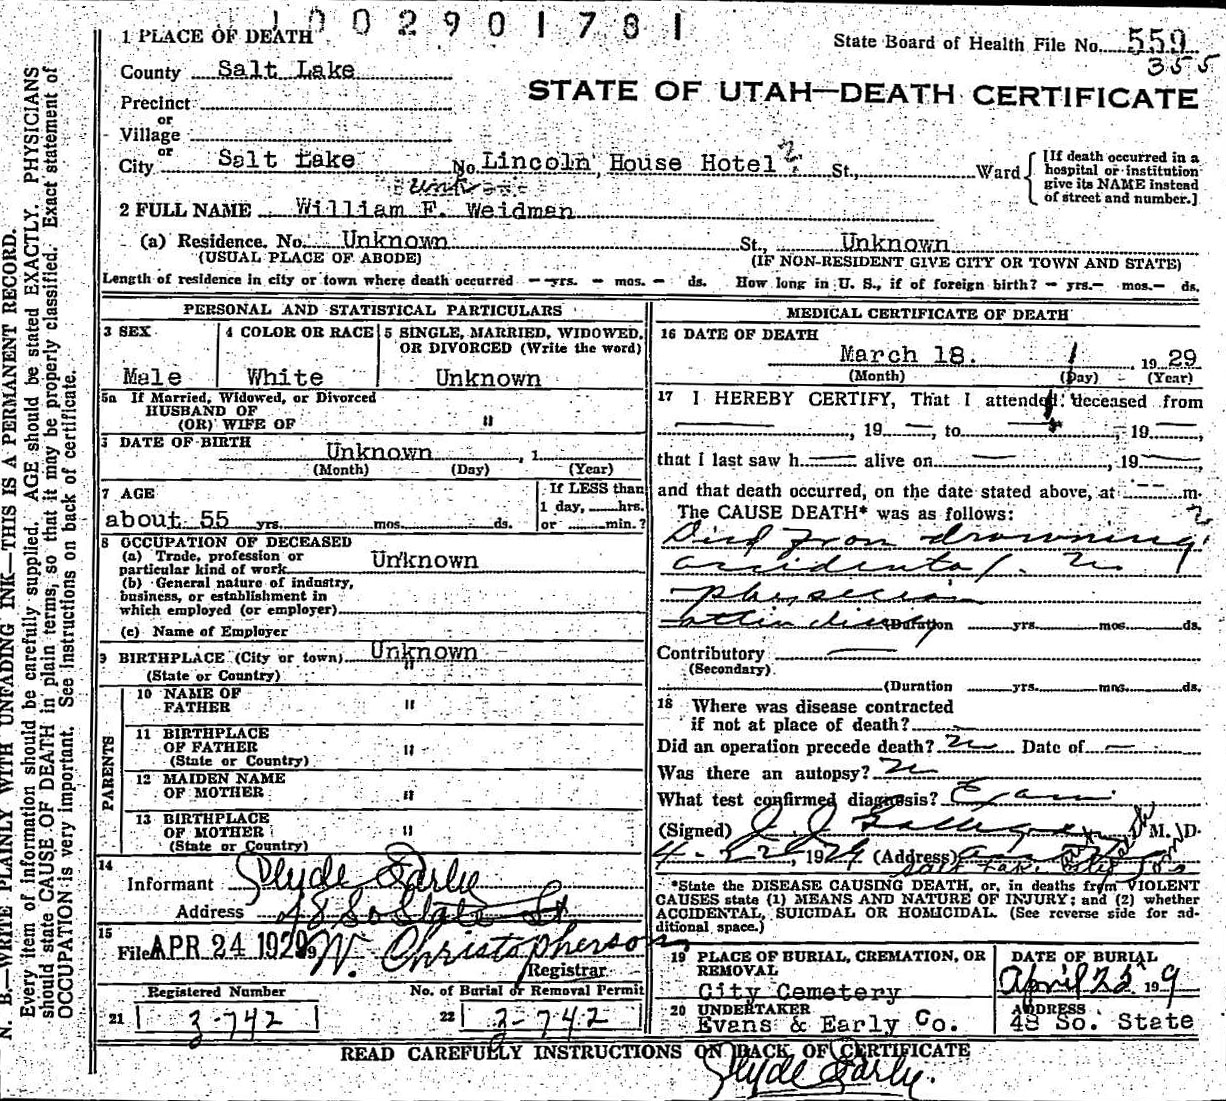 1002901781
1 PLACE OF DEATH
State Board of Health File No. 559
355
County Salt Lake
STATE OF UTAH—DEATH CERTIFICATE
Precinct
or
Village
or
City Salt Lake No. Lincoln House Hotel St., Ward [If death occurred in a hospital or institution give its NAME instead of street and number.]
unk
2 FULL NAME William F. Weidman
(a) Residence. No. Unknown St., Unknown
(USUAL PLACE OF ABODE) (IF NON-RESIDENT GIVE CITY OR TOWN AND STATE)
Length of residence in city or town where death occurred — yrs. — mos. — ds. How long in U. S., if of foreign birth? — yrs. — mos. — ds.
PERSONAL AND STATISTICAL PARTICULARS
3 SEX
Male
4 COLOR OR RACE
White
5 SINGLE, MARRIED, WIDOWED, OR DIVORCED (Write the word)
Unknown
5a If Married, Widowed, or Divorced
HUSBAND OF
(OR) WIFE OF "
6 DATE OF BIRTH
Unknown , 1
(Month) (Day) (Year)
7 AGE
about 55 yrs. mos. ds.
If LESS than
1 day, hrs.
or min.?
8 OCCUPATION OF DECEASED
(a) Trade, profession or
particular kind of work Unknown
(b) General nature of industry,
business, or establishment in
which employed (or employer)
(c) Name of Employer
9 BIRTHPLACE (City or town) Unknown
(State or Country) "
PARENTS
10 NAME OF
FATHER "
11 BIRTHPLACE
OF FATHER "
(State or Country)
12 MAIDEN NAME
OF MOTHER "
13 BIRTHPLACE
OF MOTHER "
(State or Country)
14
Informant Clyde Early
Address 48 So State St
15
Filed APR 24 1929 W. Christopherson
Registrar
Registered Number No. of Burial or Removal Permit
21 3-742 22 3-742
MEDICAL CERTIFICATE OF DEATH
16 DATE OF DEATH
March 18. , 1929
(Month) (Day) (Year)
17 I HEREBY CERTIFY, That I attended deceased from
— , 19 — , to — , 19 —
that I last saw h — alive on — , 19 —
and that death occurred, on the date stated above, at -- m.
The CAUSE DEATH* was as follows:
Died from drowning
accidental. No
physician
attending
(Duration yrs. mos. ds.
Contributory —
(Secondary)
(Duration yrs. mos. ds.
18 Where was disease contracted
if not at place of death?
Did an operation precede death? no Date of —
Was there an autopsy? no
What test confirmed diagnosis? Exam
(Signed) J J M. D.
4-22, 1929 (Address) Salt Lake City
*State the DISEASE CAUSING DEATH, or, in deaths from VIOLENT
CAUSES state (1) MEANS AND NATURE OF INJURY; and (2) whether
ACCIDENTAL, SUICIDAL OR HOMICIDAL. (See reverse side for ad-
ditional space.)
19 PLACE OF BURIAL, CREMATION, OR
REMOVAL
City Cemetery
DATE OF BURIAL
April 25 1929
20 UNDERTAKER
Evans & Early Co.
ADDRESS
48 So. State
READ CAREFULLY INSTRUCTIONS ON BACK OF CERTIFICATE
Clyde Early.
N. B.—WRITE PLAINLY WITH UNFADING INK—THIS IS A PERMANENT RECORD.
Every item of information should be carefully supplied. AGE should be stated EXACTLY. PHYSICIANS
should state CAUSE OF DEATH in plain terms, so that it may be properly classified. Exact statement of
OCCUPATION is very important. See instructions on back of certificate.